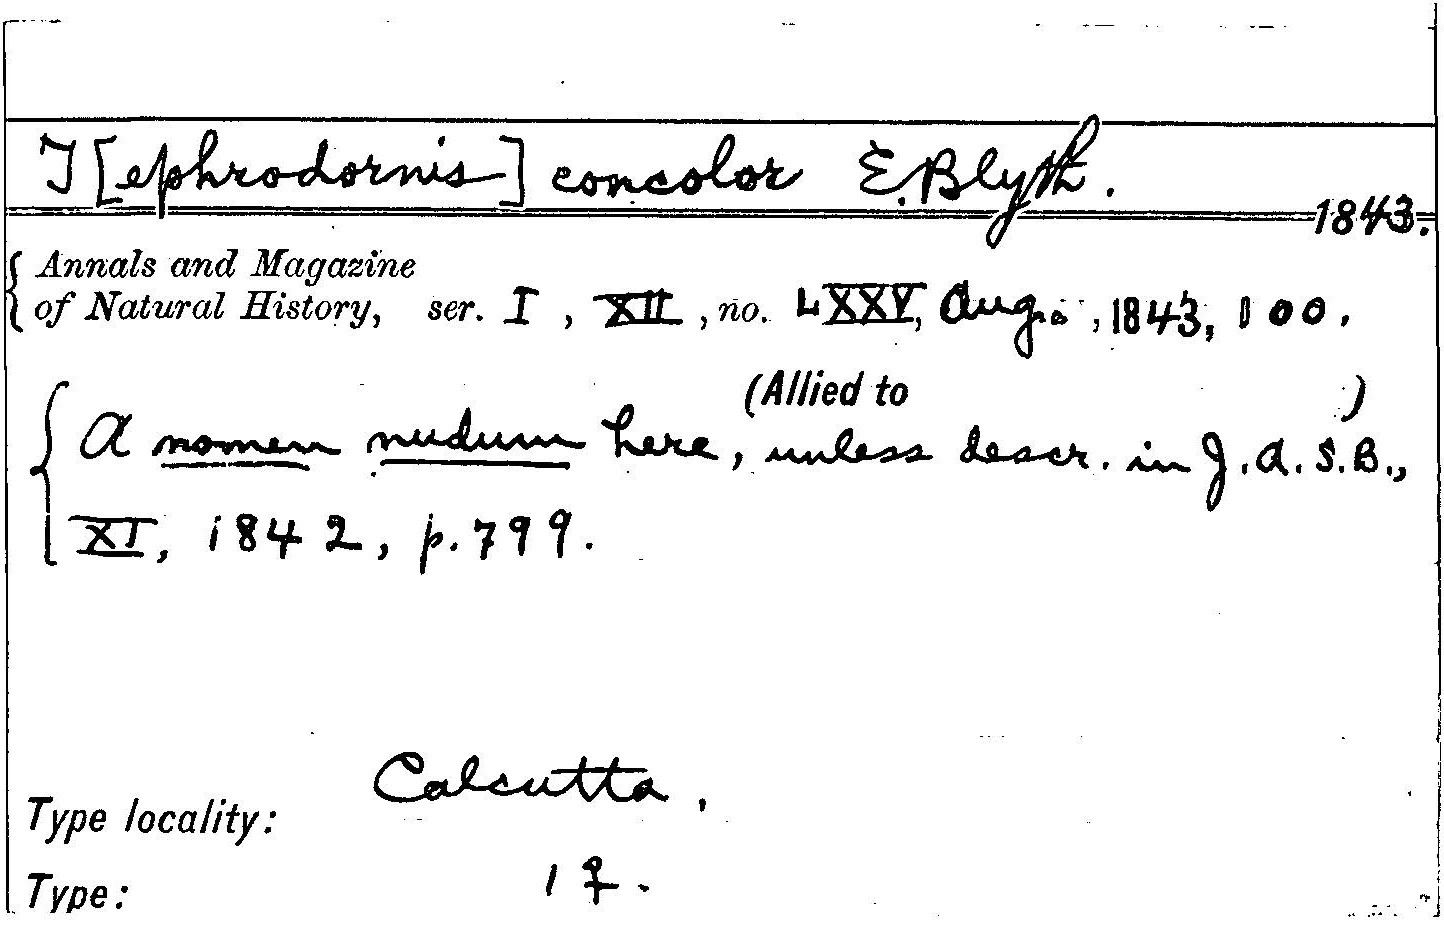 T[ephrodornis] concolor E. Blyth.
1843.
Annals and Magazine
of Natural History, ser. I, XII, no. LXXV, Aug., 1843, 100.
(Allied to )
A nomen nudum here, unless descr. in J.A.S.B.,
XI, 1842, p. 799.
Calcutta.
Type locality:
Type: 1 ♀.